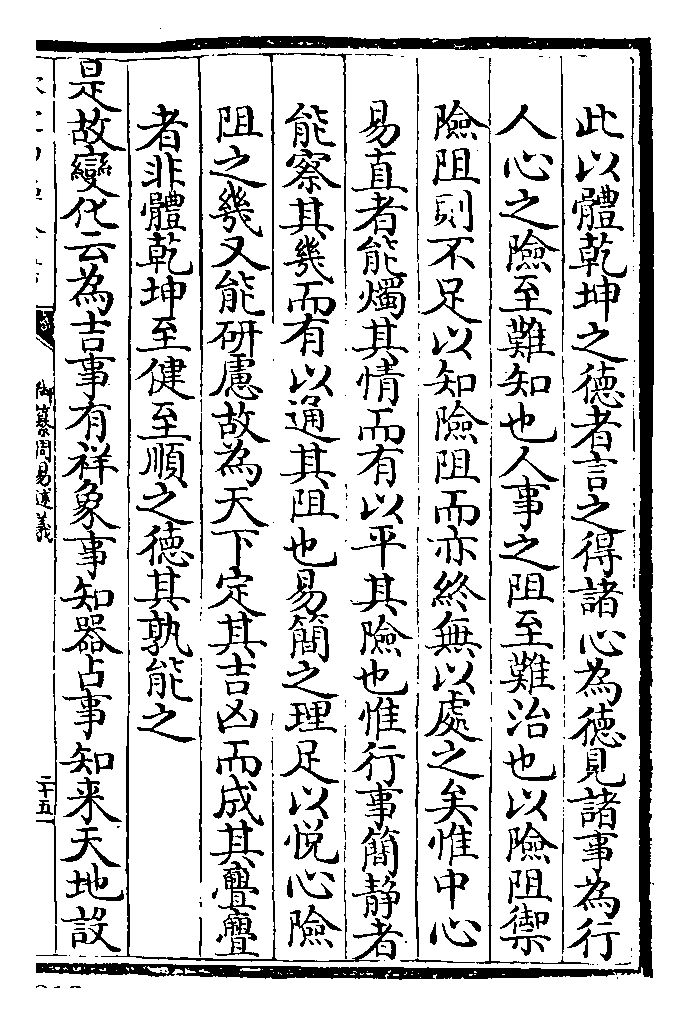 此以體乾坤之德者言之得諸心為德見諸事為行
人心之險至難知也人事之阻至難治也以險阻禦
險阻則不足以知險阻而亦終無以處之矣惟中心
易直者能燭其情而有以平其險也惟行事簡静者
能察其幾而有以通其阻也易簡之理足以悅心險
阻之幾又能研慮故為天下定其吉凶而成其亹亹
者非體乾坤至健至順之德其孰能之
是故變化云為吉事有祥象事知器占事知来天地設
御纂周易述義
二十五